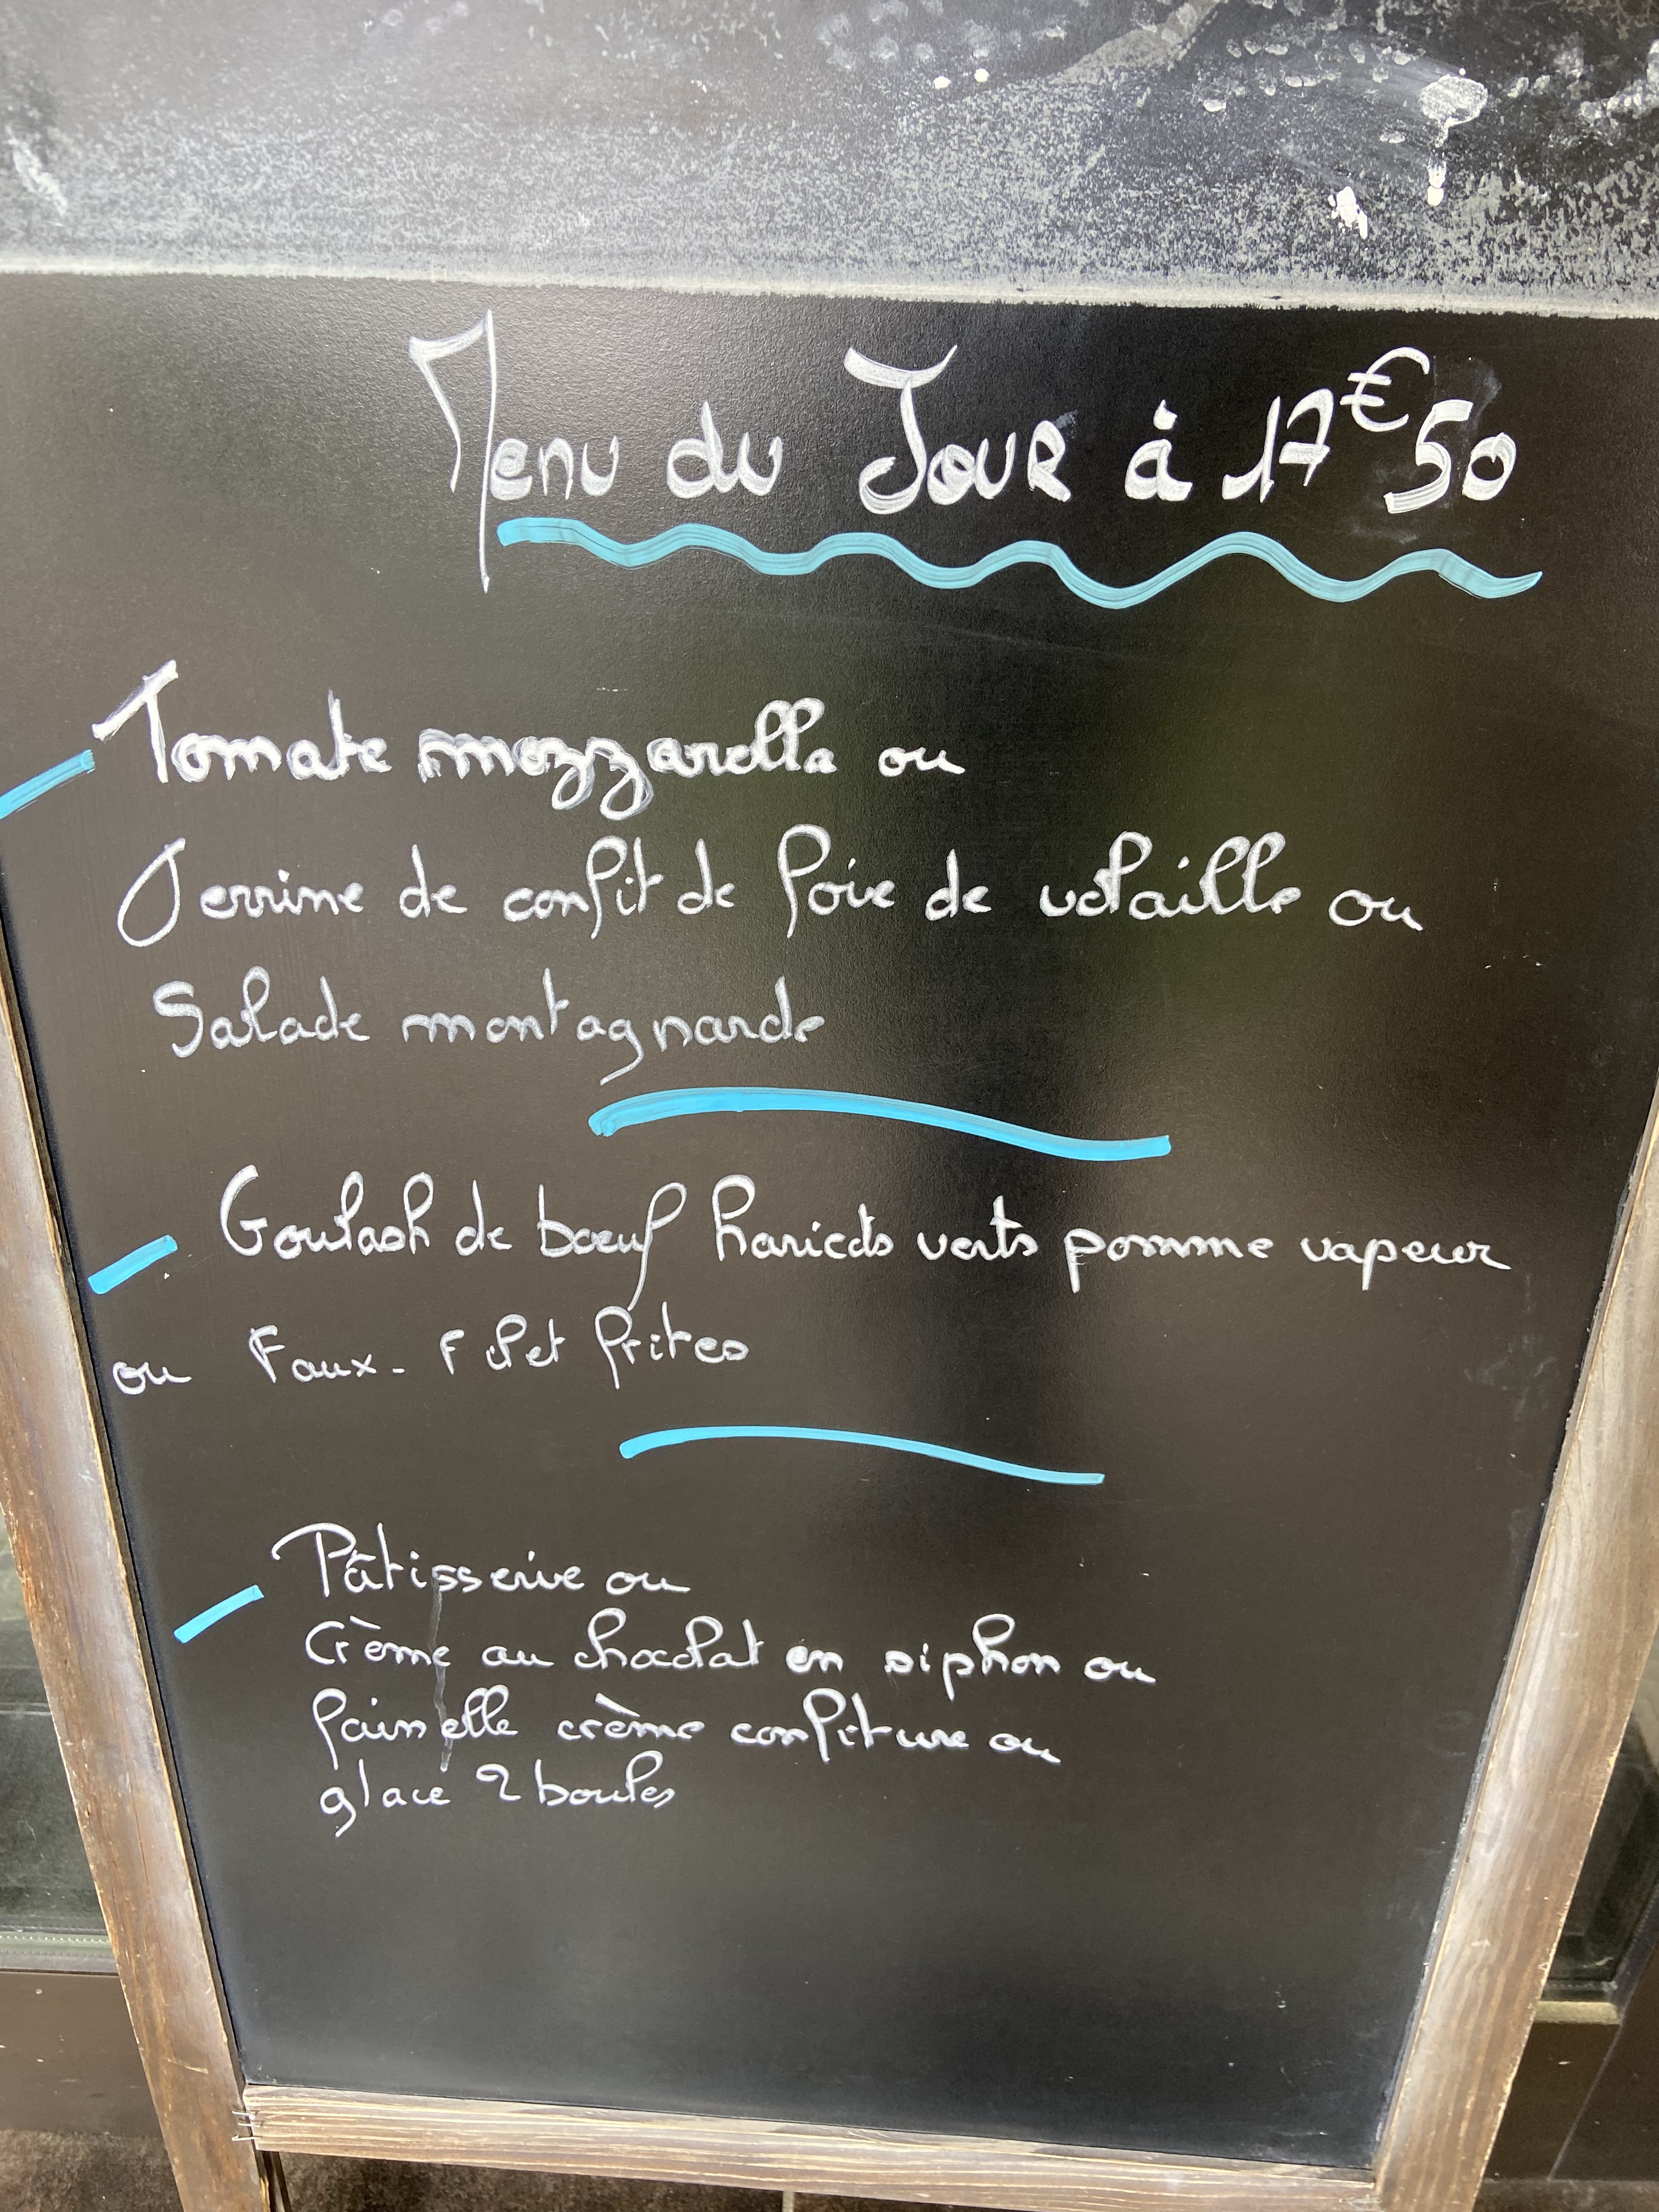 Menu du Jour à 17€50
Tomate mozzarella ou
Terrine de confit de foie de volaille ou
Salade montagnarde
Goulash de bœuf haricots verts pomme vapeur
ou Faux-Filet frites
Pâtisserie ou
Crème au chocolat en siphon ou
faisselle crème confiture ou
glace 2 boules